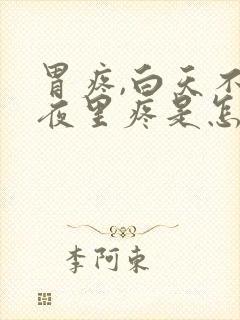 胃疼,白天不
夜里疼是怎
李阿东